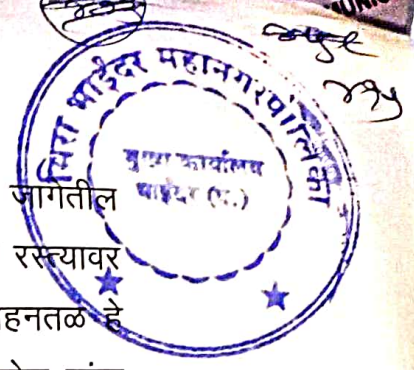 मिरा भाईंदर महानगरपालिका
मुख्य कार्यालय
भाईंदर (प.)
जागेतील
रस्त्यावर
हनतळ हे